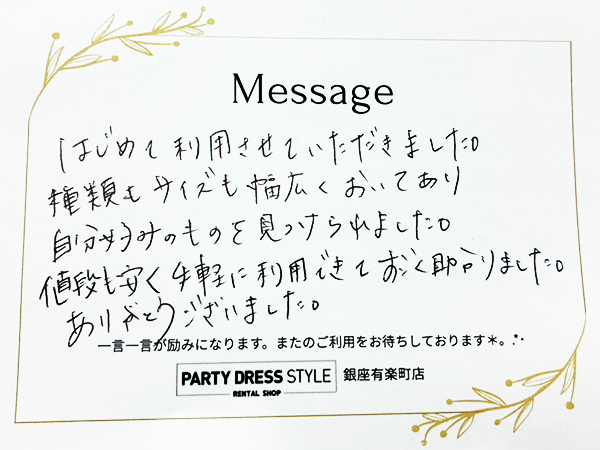 Message
はじめて利用させていただきました。
種類もサイズも幅広くおいてあり
自分好みのものを見つけられました。
値段も安く手軽に利用できてすごく助かりました。
ありがとうございました。
一言一言が励みになります。またのご利用をお待ちしております＊。.:*・
PARTY DRESS STYLE 銀座有楽町店
RENTAL SHOP